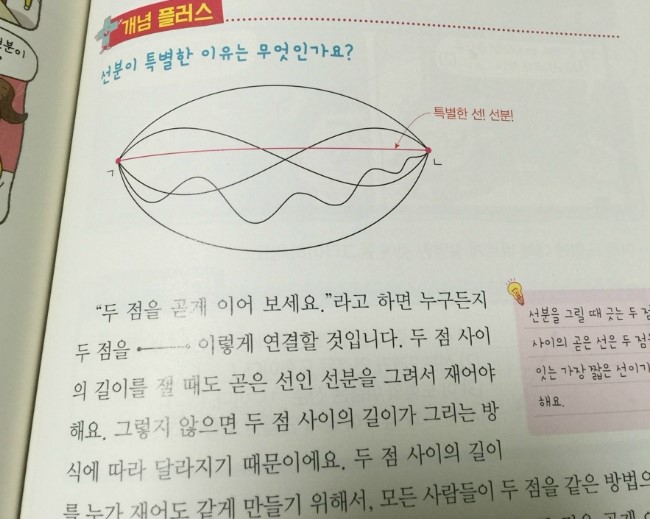 개념 플러스
선분이 특별한 이유는 무엇인가요?
특별한 선! 선분!
ㄱ
ㄴ
“두 점을 곧게 이어 보세요.”라고 하면 누구든지
두 점을 이렇게 연결할 것입니다. 두 점 사이
의 길이를 잴 때도 곧은 선인 선분을 그려서 재어야
해요. 그렇지 않으면 두 점 사이의 길이가 그리는 방
식에 따라 달라지기 때문이에요. 두 점 사이의 길이
를 누가 재어도 같게 만들기 위해서, 모든 사람들이 두 점을 같은 방법으
선분을 그릴 때 긋는 두 점
사이의 곧은 선은 두 점
잇는 가장 짧은 선이
해요.